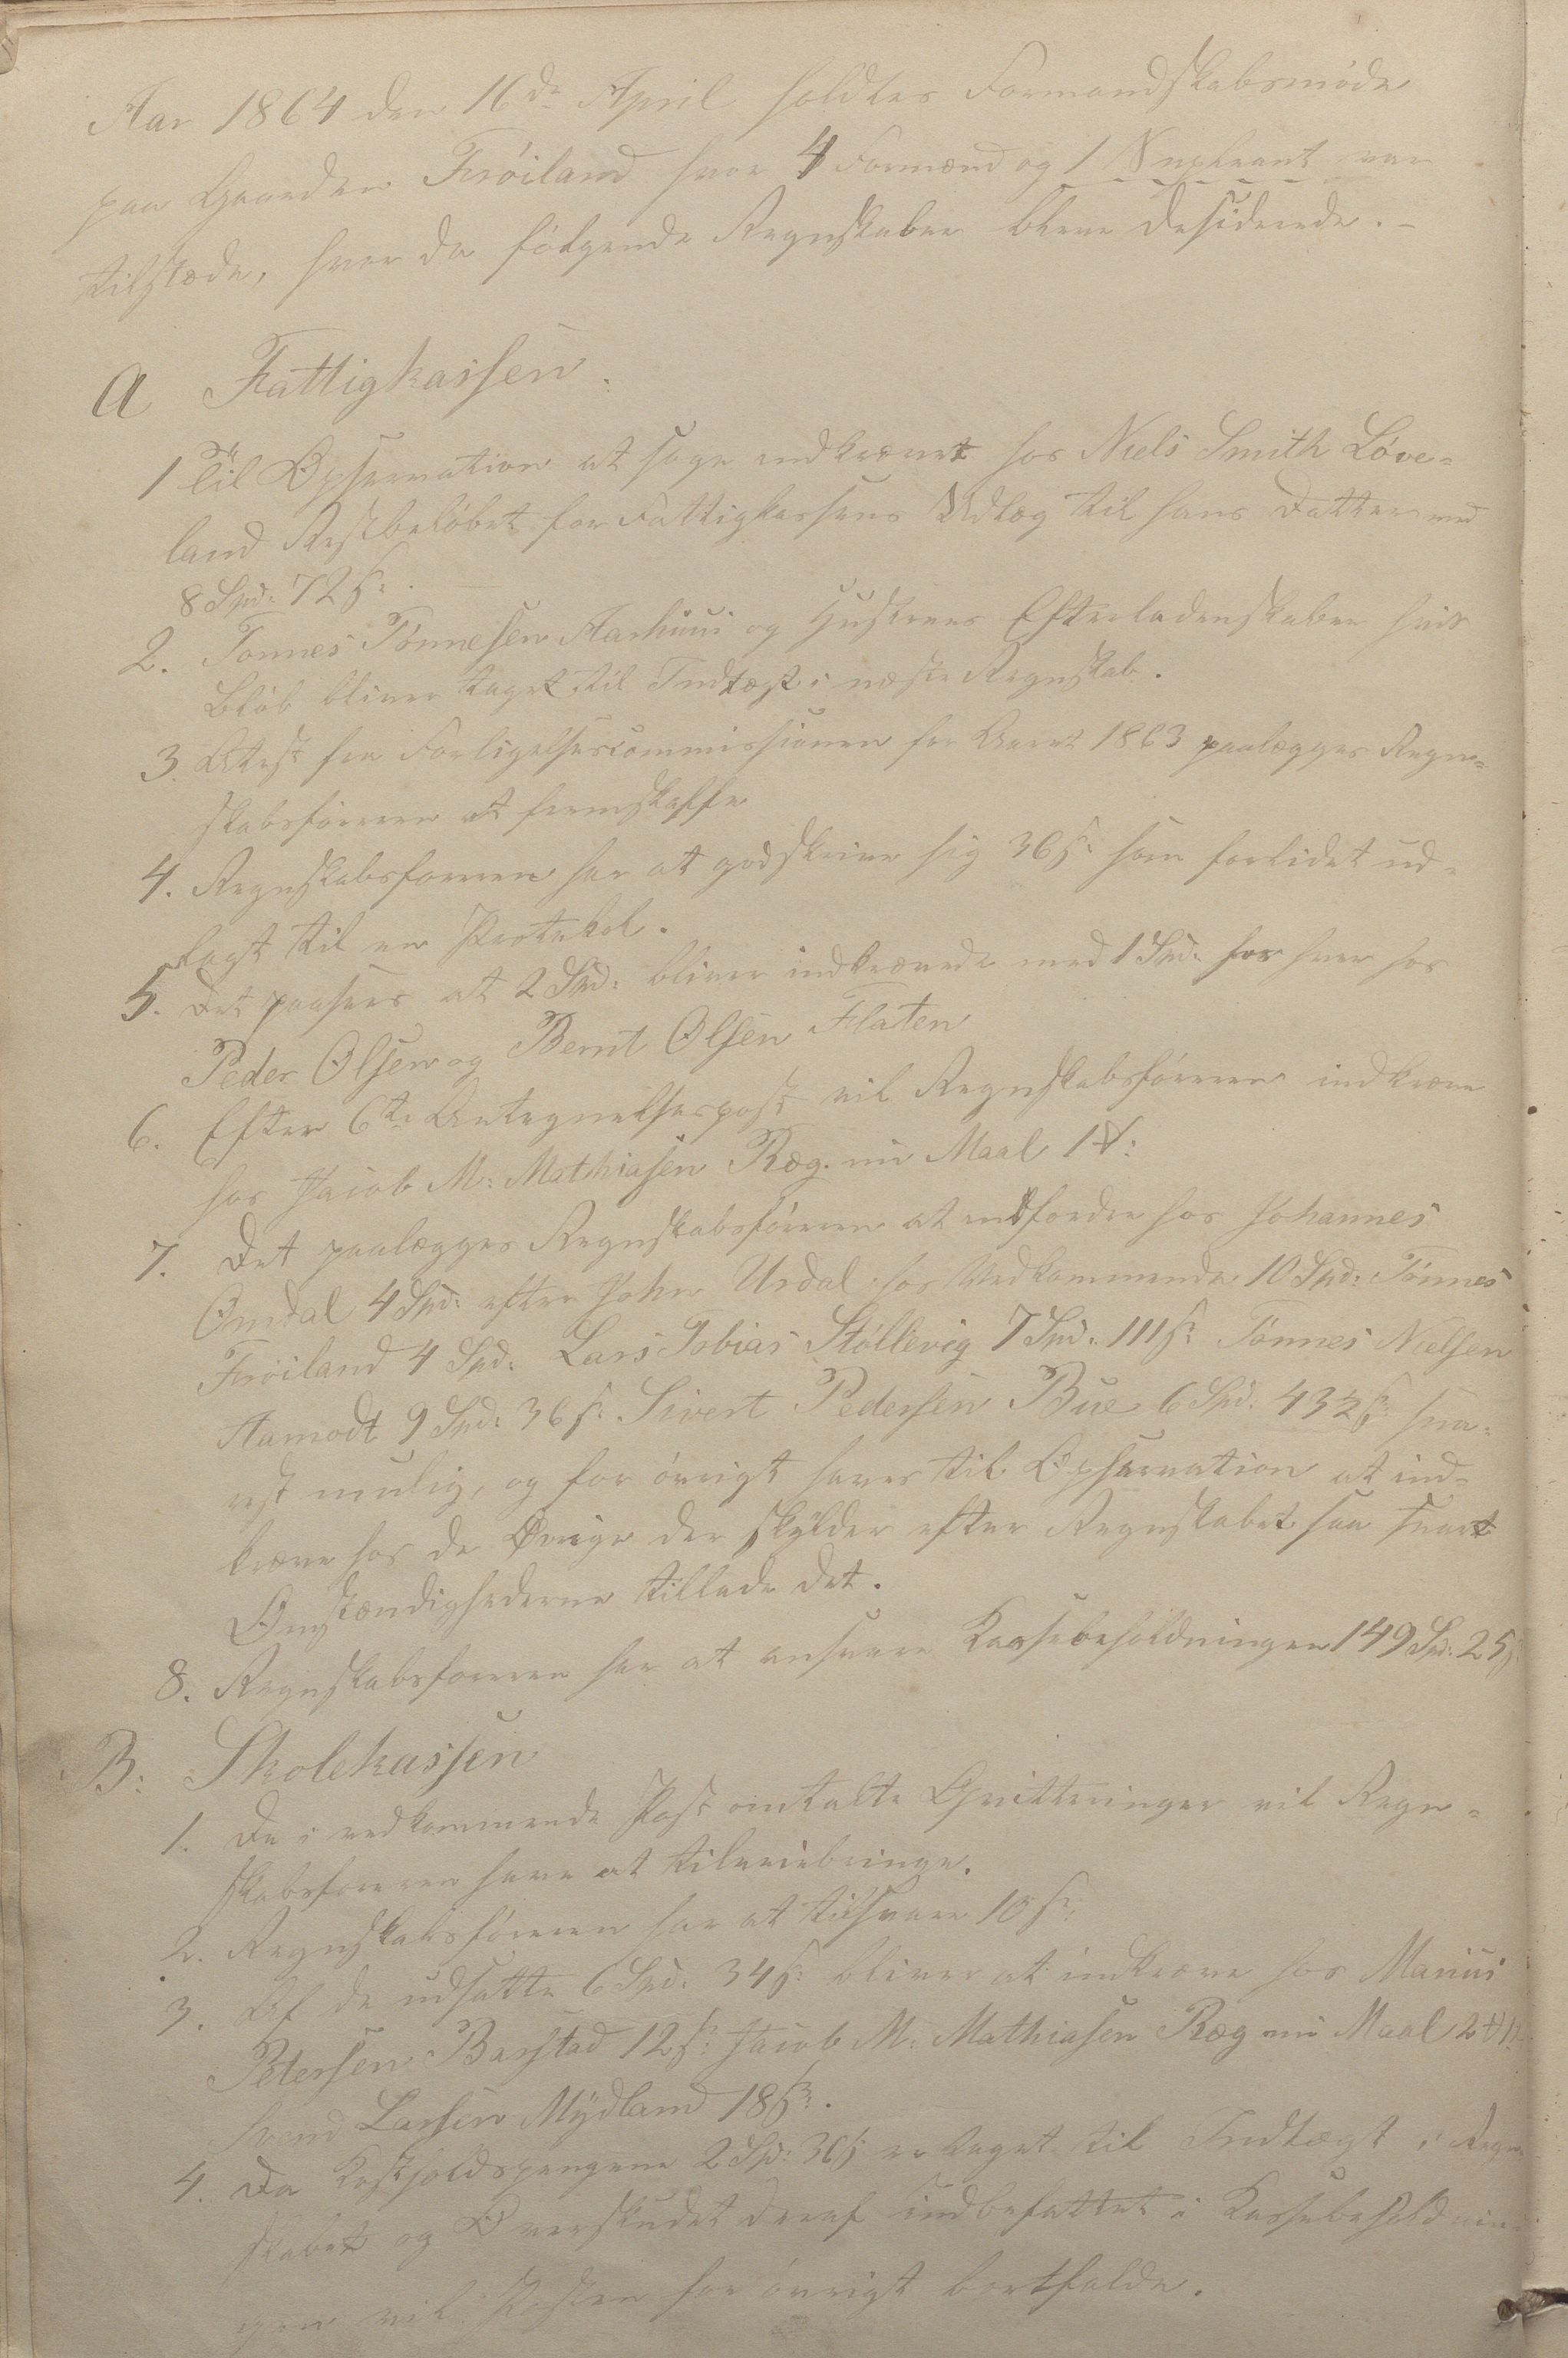 Aar 1864 den 16de April holdtes Formandskabsmøde
paa Gaarden Frøiland hvor 4 Formænd og 1 Supleant var
tilstæde, hvor da følgende Regnskaber bleve desiderede. -
A Fattigkassen.
1 Til Opservation at søge indkrævet hos Niels Smith Løve-
land Restbeløbet for Fattigkassens Udlæg til hans Datter med
8 Spd: 72 s:
2. Tønnes Tønnesen Aarhuus og Hustrues Efterladenskaber hvis
Bløb bliver taget til Indtægt i næste Regnskab.
3. Attest fra Forligelsescommissionen for Aaret 1863 paalægges Regn-
skabsføreren at fremskaffe
4. Regnskabsføreren har at godskrive sig 36 s: som forlidet ud-
lagt til en Protokol.
5. Det paasees at 2 Spd: bliver indkrævede med 1 Spd: for hver hos
Peder Olsen og Bernt Olsen Flaten
6. Efter 6te Antegnelsespost vil Regnskabsføreren indkræve
hos Jacob M: Mathiasen Ræg. nu Maal 1 ort:
7. Det paalægges Regnskabsføreren at indfordre hos Johannes
Omdal 4 Spd: efter John Urdal hos Vedkommende 10 Spd: Tønnes
Frøiland 4 Spd: Lars Tobias Støllevig 7 Spd: 111 s: Tønnes Nielsen
Aamodt 9 Spd: 36 s: Sivert Pedersen Bue 6 Spd: 43½ s: sna-
rest mulig, og for øvrigt haves til Opservation at ind-
kræve hos de Øvrige der skylder efter Regnskabet saa snart
Omstændighederne tillade det.
8. Regnskabsføreren har at ansvare Kassebeholdningen 149 Spd: 25 s:
B: Skolekassen
1. De i vedkommende Post omtalte Qvitteringer vil Regn-
skabsføreren have at tilveiebringe.
2. Regnskabsføreren har at tilsvare 10 s:
3. Af de udsatte 6 Spd: 34 s: bliver at indkræve hos Marius
Petersen Barstad 12 s: Jacob M: Mathiasen Ræg nu Maal 2 ort
Svend Larsen Mydland 18 s:.
4. Da Kostholdspengene 2 Spd: 36 s er taget til Indtægt i Regn
skabet og Overskudet deraf indbefattet i Kassebeholdnin-
gen vil Posten for øvrigt bortfalde.